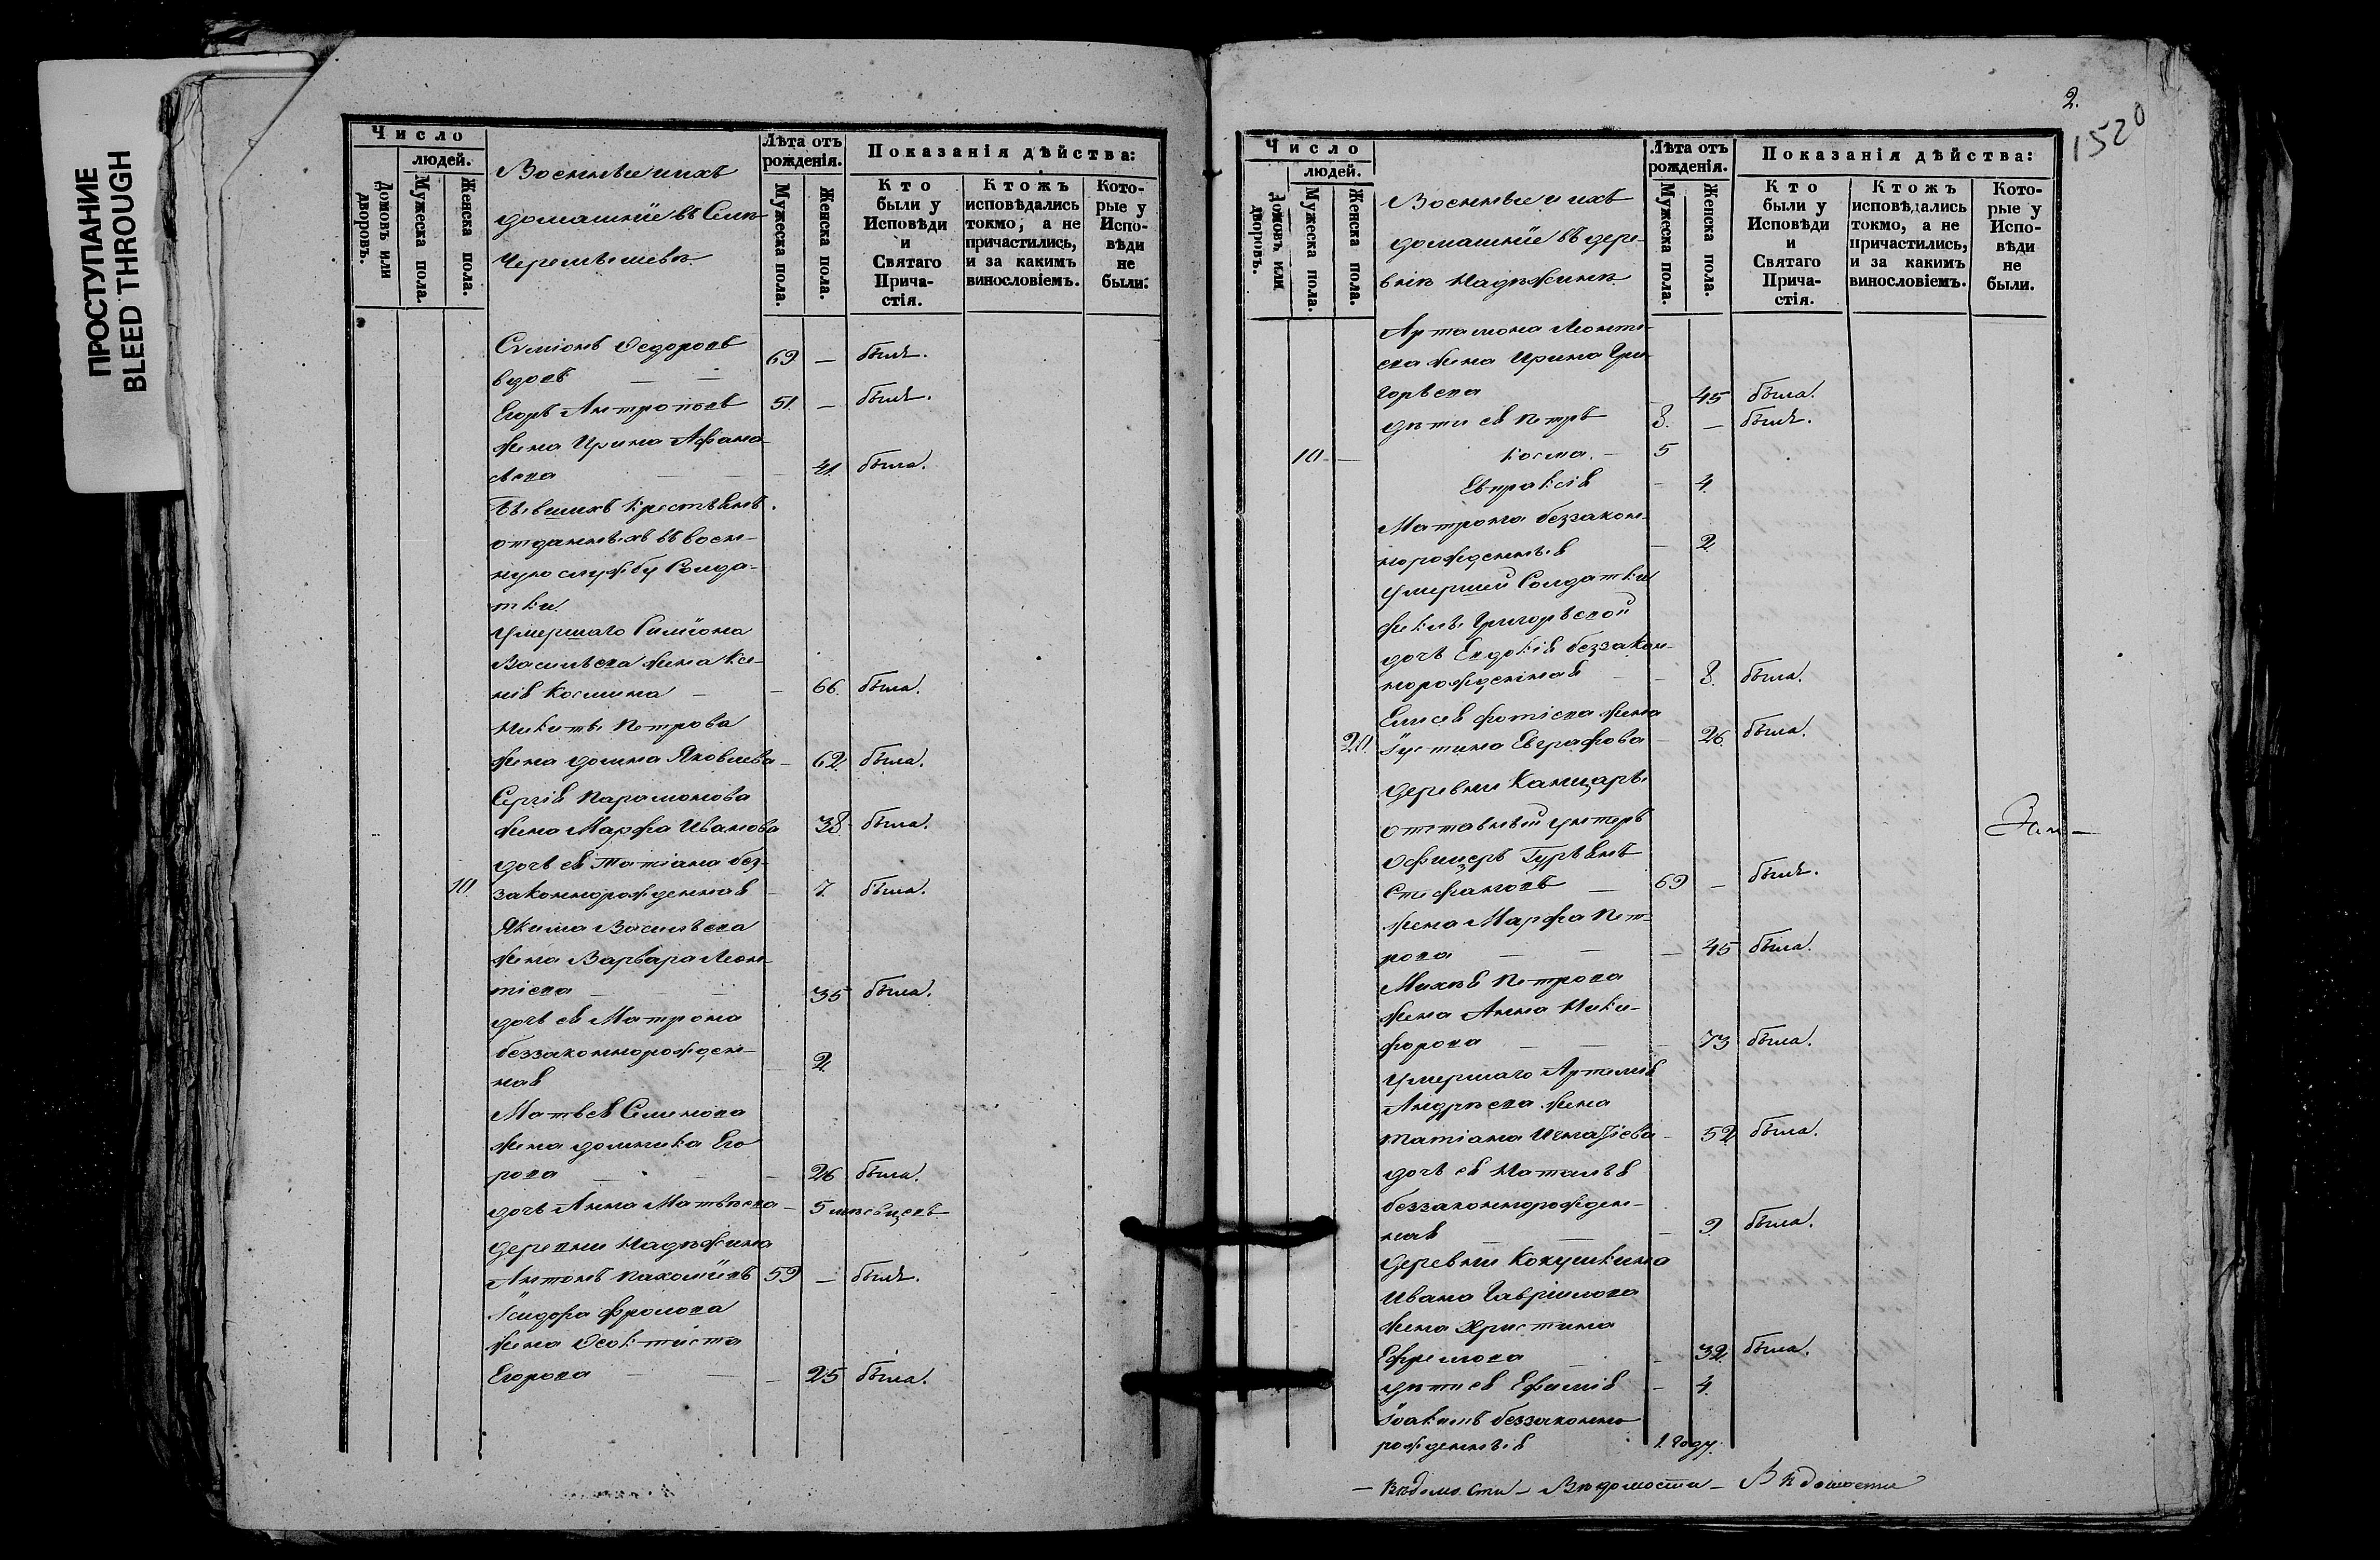 ПРОСТУПАНИЕ
BLEED THROUGH
Число
людей.
Домовъ или дворовъ.
Мужеска пола.
Женска пола.
Военные ихъ
домашнїе въ Селѣ
Черемышевѣ
Лѣта отъ рожденія.
Мужеска пола.
Женска пола.
Показанія дѣйства:
Кто были у Исповѣди и Святаго Прича-стія.
Ктожъ исповѣдались токмо, а не причастились, и за какимъ винословіемъ.
Кото-рые у Испо-вѣди не были.
Сѵміонъ Ѳедоровъ
вдовъ — — 69 — былъ.
Егоръ Антроповъ 51. — былъ.
жена Ирина Афана-
сьева — — 41. была.
Бывшихъ крестьянъ
отданныхъ въ воен-
ную службу Солда-
тки
умершаго Симїона
Васильева жена Ксе-
нія Космина — — 66. была.
Никиты Петрова
жена Домна Яковлева — 62. была.
Сергія Парамонова
жена Марфа Иванова 38. была.
дочь ея Татіана без-
10. законнорожденная — 7. была.
Якима Васильева
жена Варвара Леон-
тіева — — 35 была.
дочь ея Матрона
беззаконнорожден-
ная — 2.
Матвея Семенова
жена Домника Его
рова — — 26 была.
дочь Анна Матвѣева — 5 мѣсяцевъ
деревни Надѣжина
Антонъ Пахомїевъ 59 — былъ.
Їсидора Фролова
жена Ѳеоктиста
Егорова — — — 25 была.
2.
1520
Число
людей.
Домовъ или дворовъ.
Мужеска пола.
Женска пола.
Военные и ихъ
домашнїе въ дере-
внѣ Надѣжинѣ
Лѣта отъ рожденія.
Мужеска пола.
Женска пола.
Показанія дѣйства:
Кто были у Исповѣди и Святаго Прича-стія.
Ктожъ исповѣдались токмо, а не причастились, и за какимъ винословіемъ.
Кото-рые у Испо-вѣди не были.
Артамона Леонтi-
ева жена Ирина Гри-
горьева — 45 была.
дѣти ея Петръ 8. — былъ.
10 — Косма. — 5
Евпраксія — 4.
Матрона беззакон-
норожденныя — 2.
умершей Солдатки
Феклы Григорьевой
дочь Евдокія беззакон-
норожденная — 8. была.
Елисея Фотіева жена
20. Їустина Евграфова — 26. была.
деревни Канцары
отставный унтеръ
офицеръ Гурьянъ
Стефановъ — 69 — былъ.
жена Марфа Пет-
рова — — — 45 была.
Михѣя Петрова
жена Анна Ники-
форова — — — 73 была.
умершаго Артемія
Андрѣева жена
Татіана Игнатіева — 52 была.
дочь ея Наталья
беззаконнорожден-
ная — — — 9. была.
деревни Кокушкина
Ивана Гавріилова
жена Христина
Ефремова — — 32. была.
дѣти ея Ефимія — 4.
Їоакимъ беззаконно
рожденныя 1. году.
— Вѣдомости — Вѣдомости — Вѣдомости